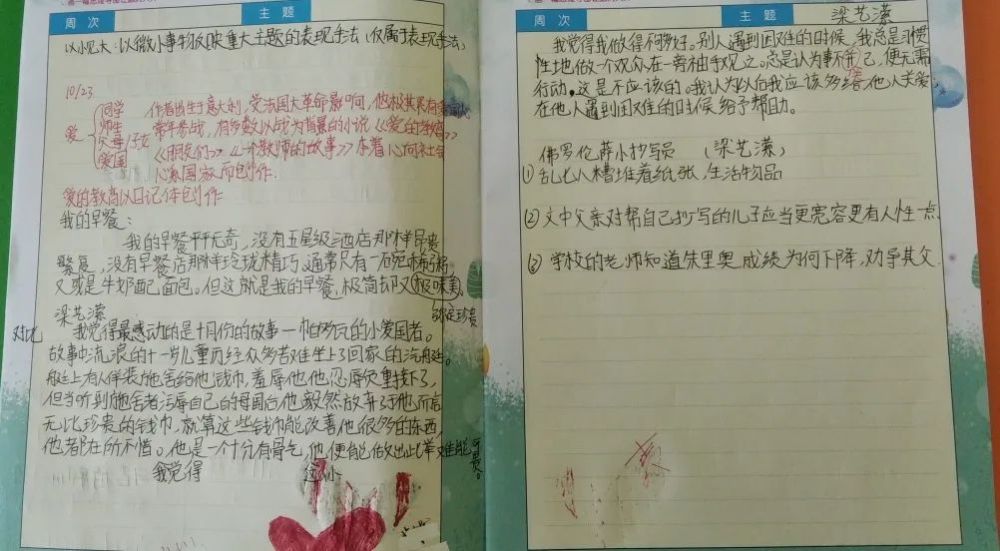 周次
主题
以小见大:以微小事物反映重大主题的表现手法(仅属于表现手法)
10/23
同学
师生
父母/子女
爱国
爱
作者出生于意大利,受法国大革命影响,他极其具有
常年参战,有多数以战为背景的小说《爱的教育》
《朋友们》《一个教师的故事》本着心向社会
心系国家而创作
爱的教育以日记体创作
我的早餐:
我的早餐平平无奇,没有五星级酒店那样昂贵
繁复,没有早餐店那样玲珑精巧,通常只有一碗
又或是牛奶配面包。但这就是我的早餐,极简却又极味美
珍贵
梁艺潆
对比
我觉得最感动的是十月份的故事一帕多瓦的小爱国者。
故事中流浪的十一岁儿童历经众多苦难坐上了回家的汽艇。
艇上有人佯装施舍给他钱币,羞辱他他忍辱负重接下了,
但当听到施舍者污辱自己的母国后他毅然放弃对他而言
无比珍贵的钱币,就算这些钱币能改善他很多的东西,
他都在所不惜。他是一个十分有骨气,他便能做出此举难能可贵。
我觉得 这小
周次
主题
梁艺潆
我觉得我做得不够好。别人遇到困难的时候,我总是习惯
性地做一个观众,在一旁袖手观之。总是认为事不关己,便无需
行动。这是不应该的。我认为以后我应该多给他人关爱,
在他人遇到困难的时候给予帮助。
佛罗伦萨小抄写员 (梁艺潆)
① 乱七八糟堆着纸张,生活物品
② 文中父亲对帮自己抄写的儿子应当更宽容更有人性一点
③ 学校的老师知道朱里奥成绩为何下降,劝导其父